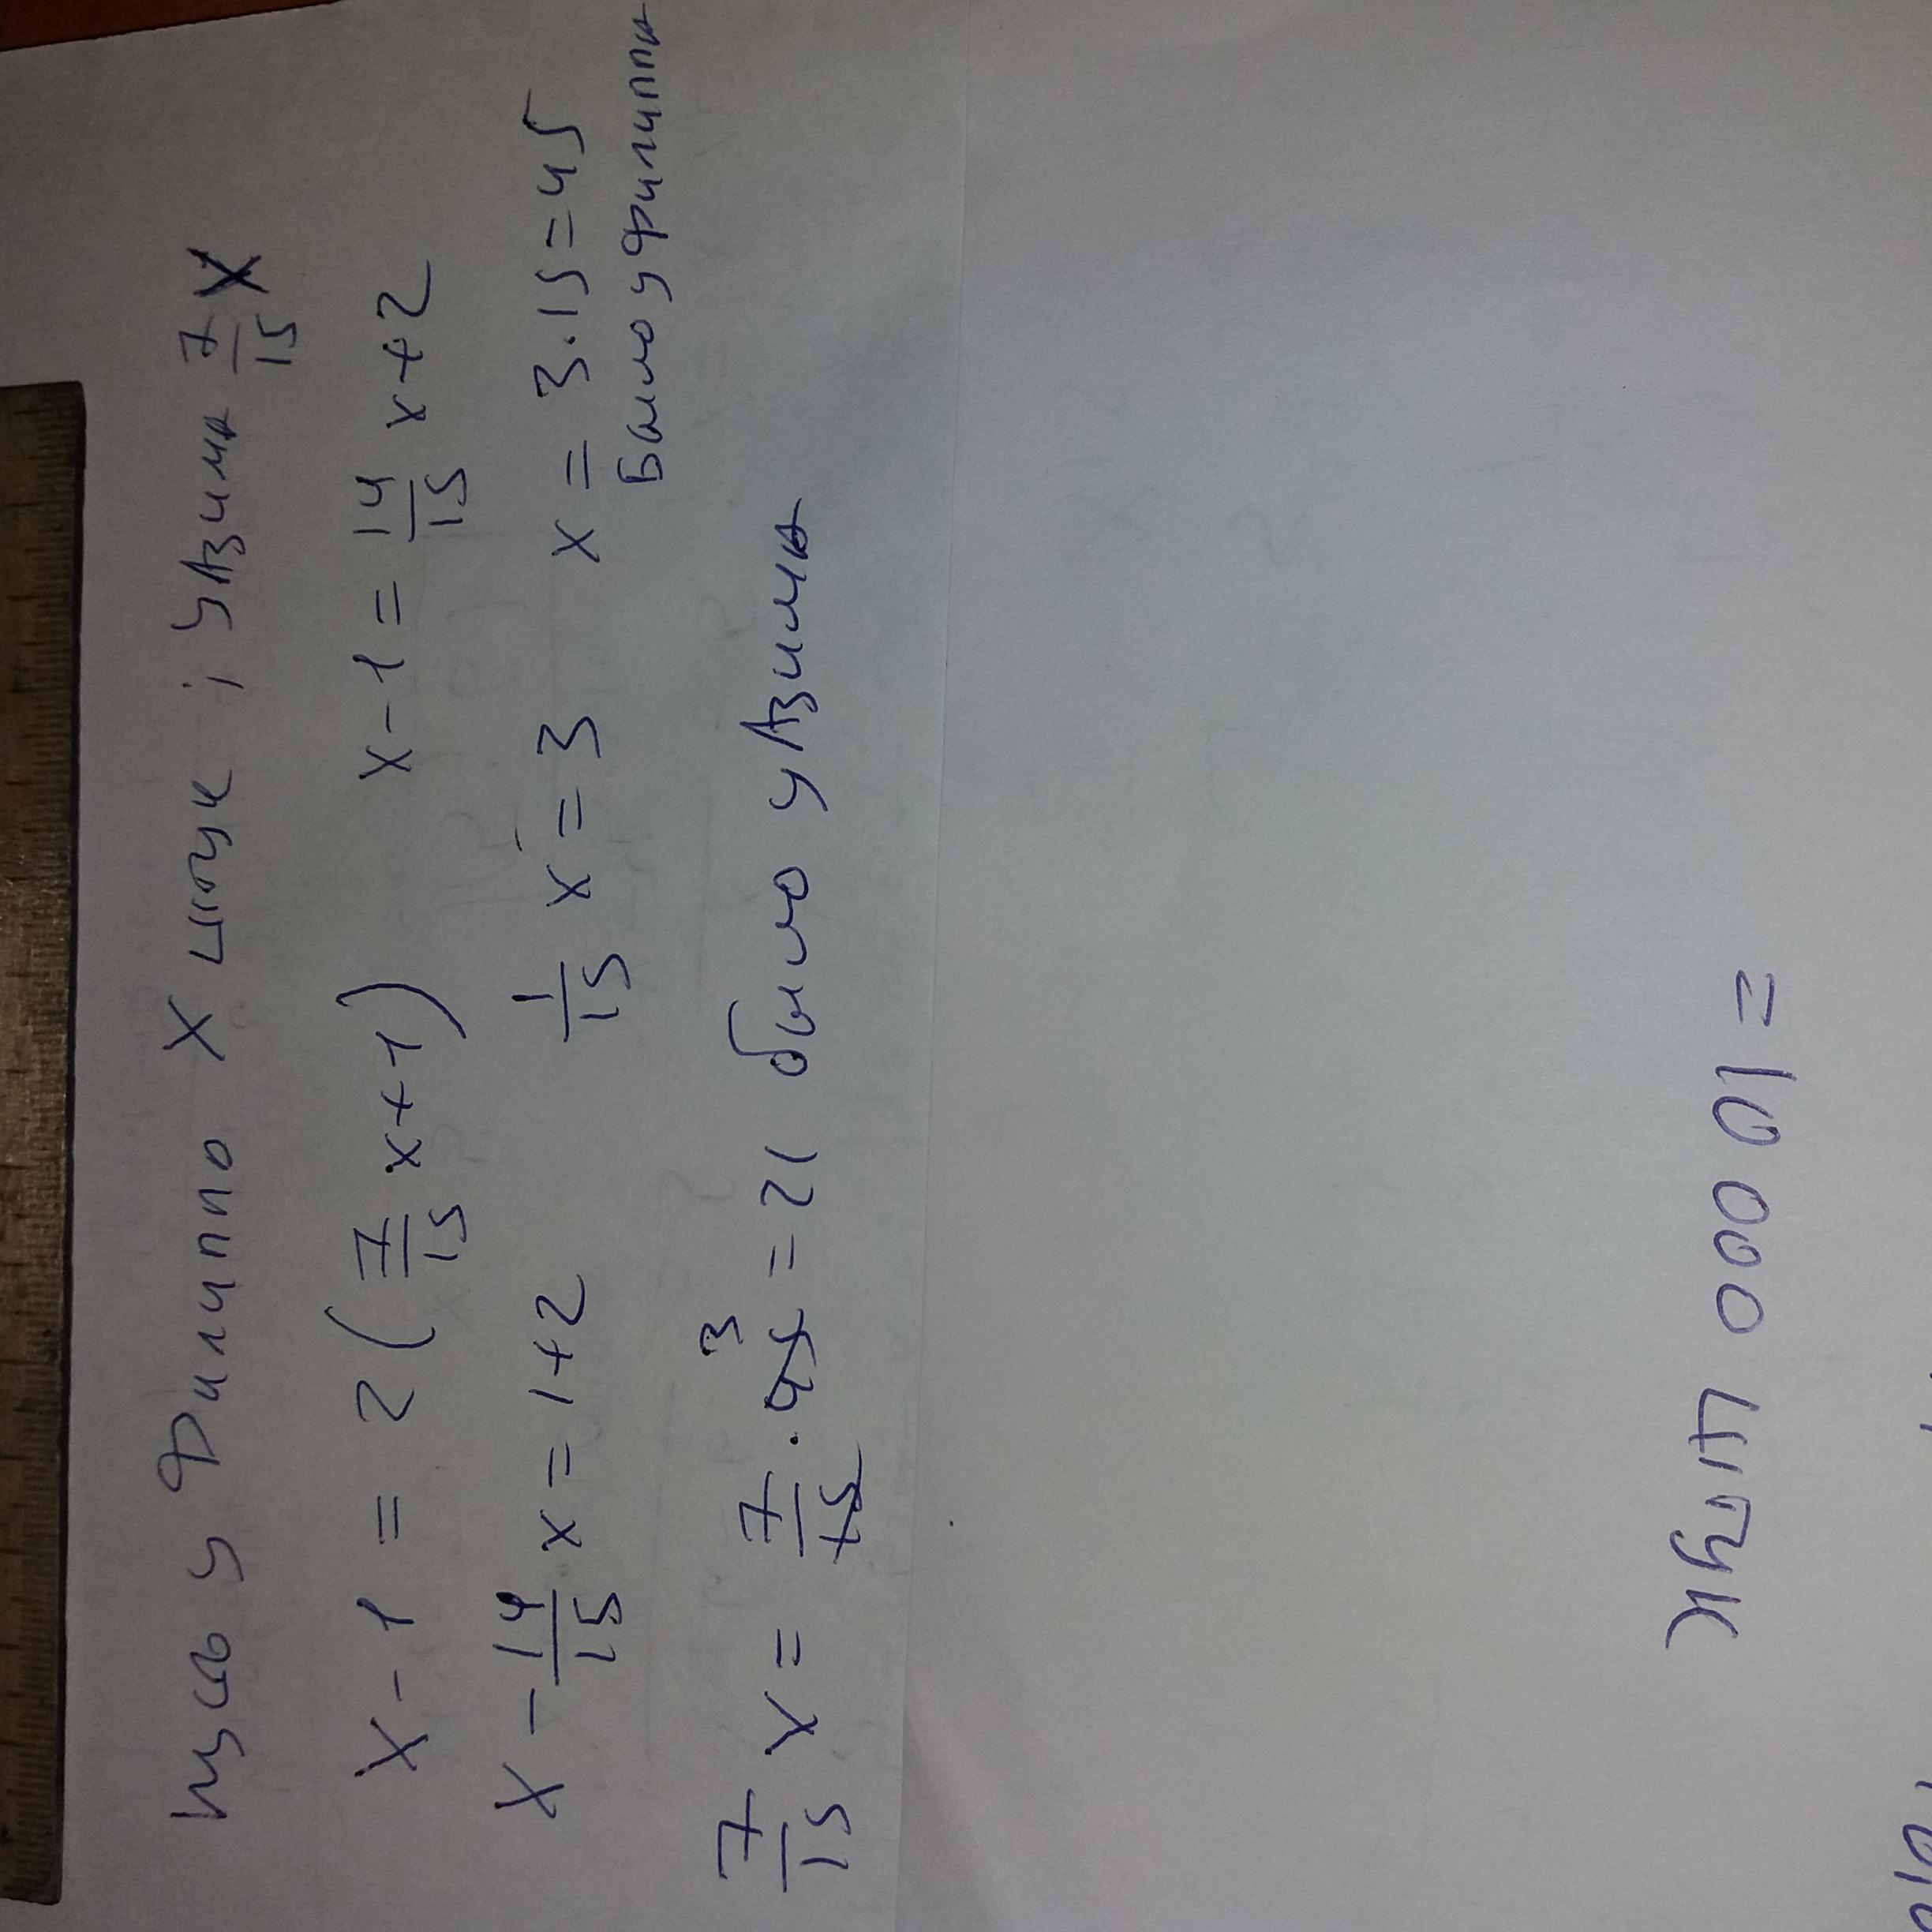 Пусть у Филиппа X штук ; У Азима 7/15 X
X - 1 = 2 (7/15 x + 1)    x - 1 = 14/15 x + 2
X - 14/15 x = 1 + 2    1/15 x = 3    x = 3 · 15 = 45
Было у Филиппа
7/15 x = 7/15 · 45 3 = 21 было у Азима
= 10 000 штук